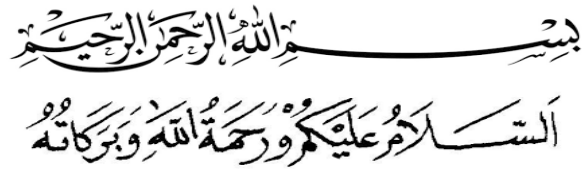 بِسْمِ اللهِ الرَّحْمَنِ الرَّحِيْمِ
اَلسَّلَامُ عَلَيْكُمْ وَرَحْمَةُ اللهِ وَبَرَكَاتُهُ